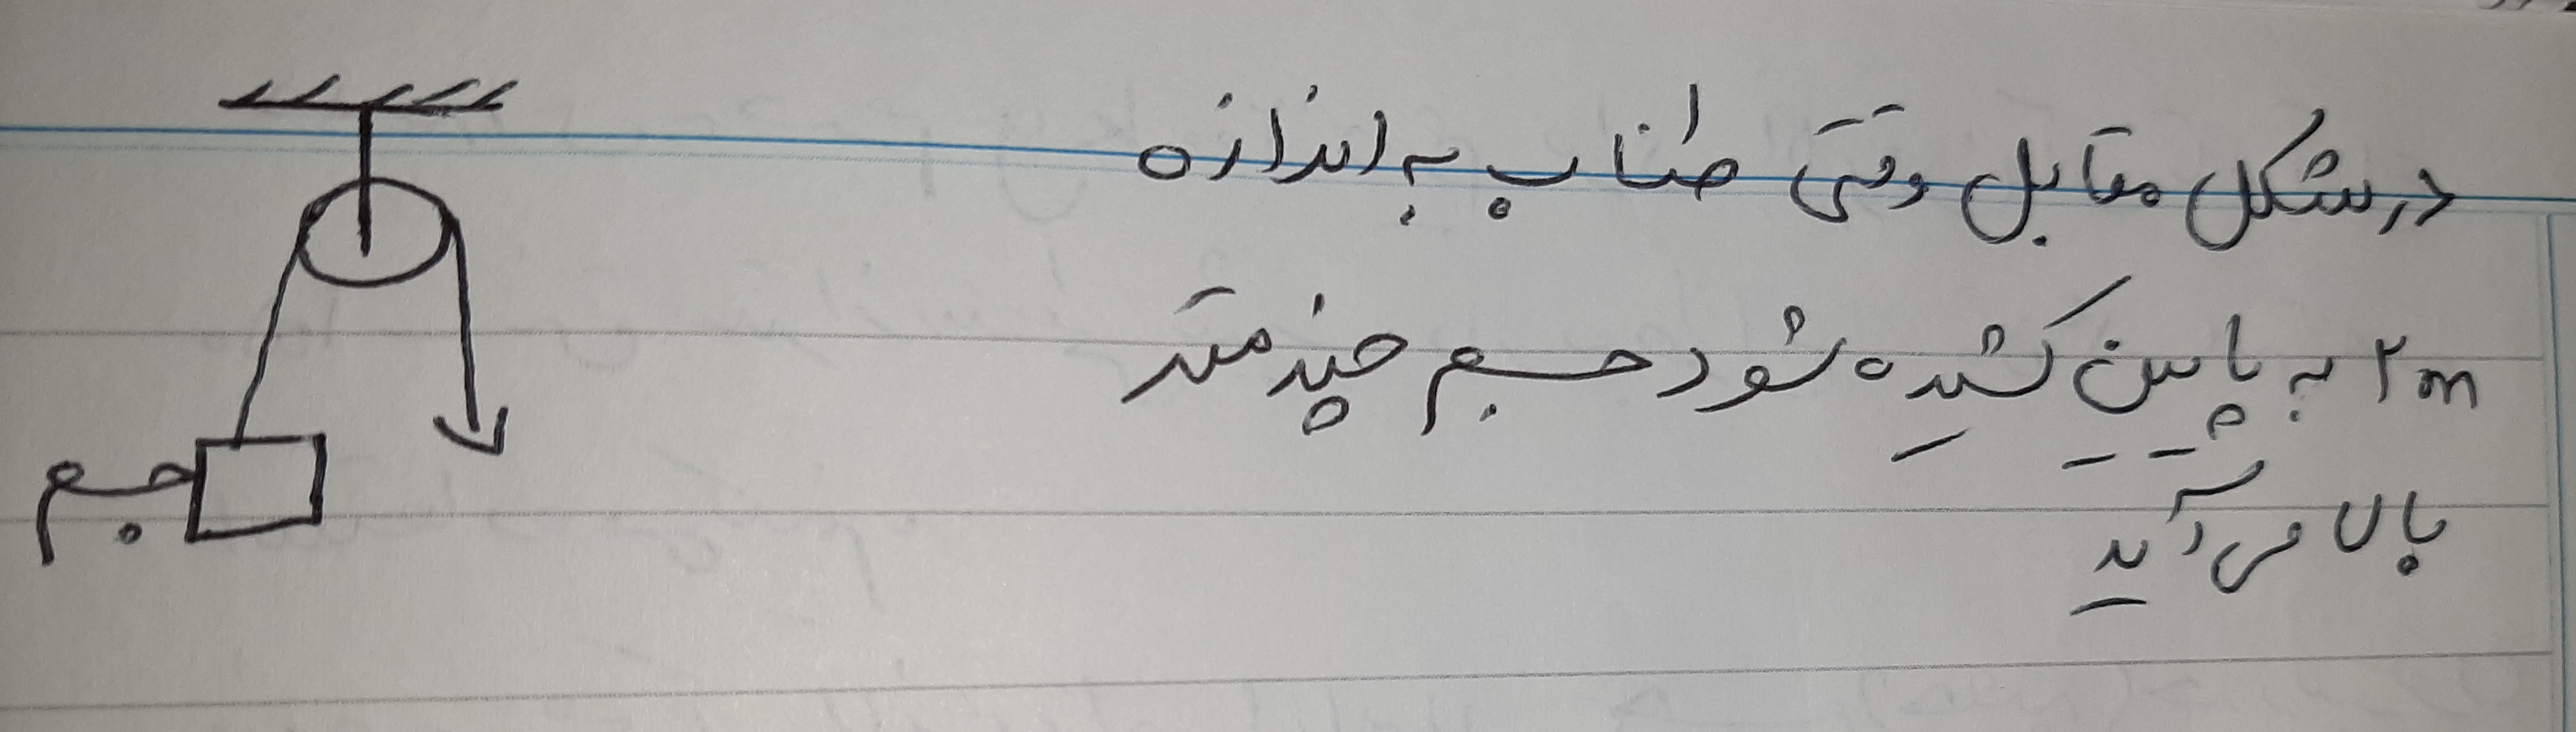 در شکل مقابل وقتی طناب به اندازه
۲m به پایین کشیده شود جسم چند متر
بالا می‌آید
جسم